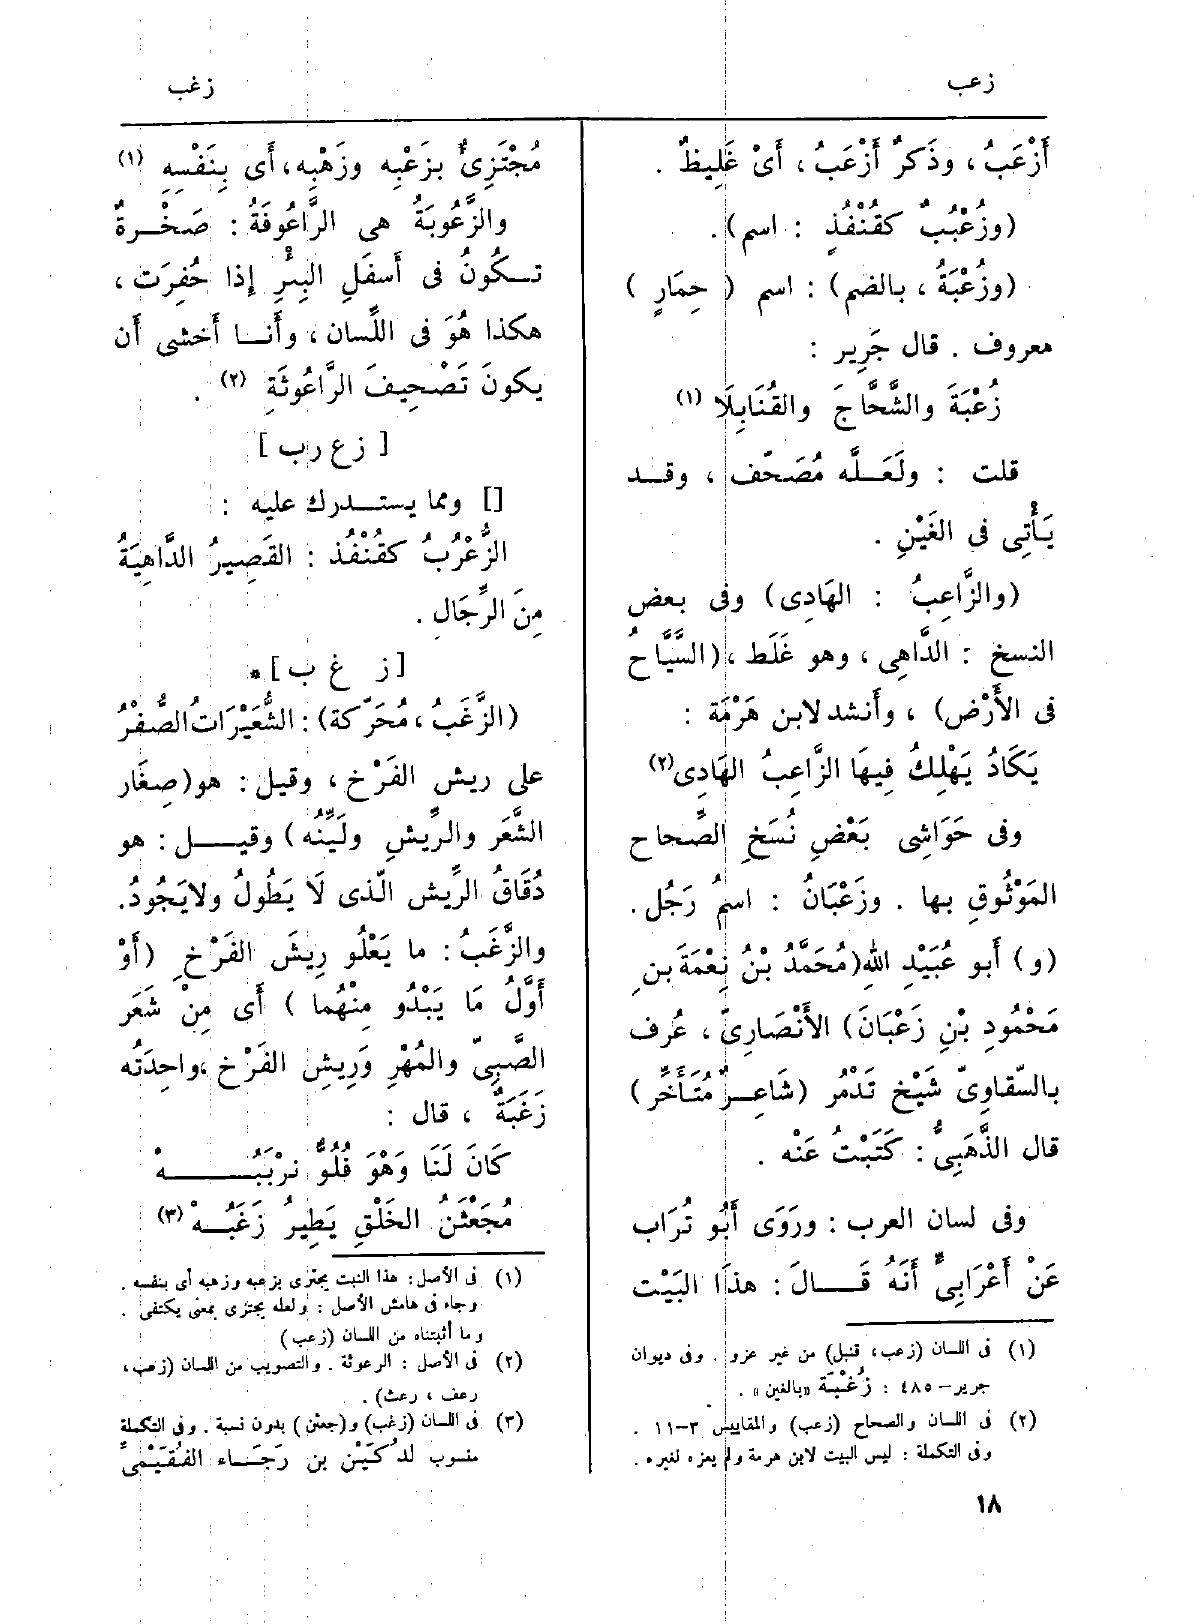 زعب
زغب
أَزْعَبُ ، وذَكرٌ أَزْعَبُ ، أَىْ غَلِيظٌ .
(وزُعْبُبٌ كقُنْفُذٍ : اسم) .
(وزُعْبَةُ ، بالضم) : اسم ( حِمَارٍ )
معروف . قال جَرِير :
زُعْبَةَ والشَّحَّاجَ والقُنَابِلَا (١)
قلت : ولَعَلَّه مُصَحّف ، وقد
يَأْتِى فى الغَيْنِ .
(والزَّاعِبُ : الهَادِى) وفى بعض
النسخ : الدَّاهِى ، وهو غَلَط ، (السَّيَّاحُ
فى الأَرْض) ، وأَنشد لابن هَرْمَة :
يَكَادُ يَهْلِكُ فِيهَا الزَّاعِبُ الهَادِى (٢)
وفى حَوَاشِى بَعْضِ نُسَخِ الصِّحاح
المَوْثُوقِ بها . وزَعْبَانُ : اسمُ رَجُل .
(و) أَبو عُبَيْدِ اللهِ (مُحَمَّدُ بْنُ نِعْمَةَ بنِ
مَحْمُودِ بْنِ زَعْبَانَ) الأَنْصَارِىّ ، عُرِف
بالسّقاوِىّ شَيْخ تَدْمُر (شَاعِرٌ مُتَأَخِّر)
قال الذَّهَبِىُّ : كَتَبْتُ عَنْه .
وفى لسان العرب : ورَوَى أَبُو تُرَاب
عَنْ أَعْرَابِىٍّ أَنَهُ قَالَ : هذَا البَيْت
(١) فى اللسان (زعب، قنبل) من غير عزو . وفى ديوان
جرير - ٤٨٥ : زُغْبَة «بالغين» .
(٢) فى اللسان والصحاح (زعب) والمقاييس ٣-١١ .
وفى التكملة : ليس البيت لابن هرمة ولم يعزه لغيره .
مُجْتَزِىٌ بزَعْبِه وزَهْبِه ، أَى بِنَفْسِهِ (١)
والزَّعُوبَةُ هى الرَّاعُوفَةُ : صَخْرةٌ
تكُونُ فى أَسفَلِ البِئْرِ إِذا حُفِرَت ،
هكذا هُوَ فى اللِّسان ، وأَنا أَخشى أَن
يكونَ تَصْحِيفَ الرَّاعُوثَةِ (٢) .
[ زع رب ]
[] ومما يستدرك عليه :
الزُّعْرُبُ كقُنْفُذ : القَصِيرُ الدَّاهِيَةُ
مِنَ الرِّجَالِ .
[ ز غ ب ] *
(الزَّغَبُ ، مُحَرّكة) : الشُّعَيْرَاتُ الصُّفْرُ
على ريش الفَرْخ ، وقيل : هو (صِغَار
الشَّعَر والرِّيشِ ولَيِّنُه) وقيل : هو
دُقَاقُ الرِّيش الّذى لَا يَطُولُ ولايَجُودُ.
والزَّغَبُ : ما يَعْلُو رِيشَ الفَرْخِ (أَوْ
أَوَّلُ مَا يَبْدُو مِنْهُما ) أَى مِنْ شَعَر
الصَّبِىّ والمُهْرِ وَرِيشِ الفَرْخ ، واحِدَتُه
زَغَبَةٌ ، قال :
كَانَ لَنَا وَهْوَ فُلُوٌّ نرْبَبُهْ
مُجَعْثَنُ الخَلْقِ يَطِيرُ زَغَبُهْ (٣)
(١) فى الأصل: هذا النبت يجتزى بزعبه وزهبه أى بنفسه .
وجاء فى هامش الأصل : ولعله يجتزى بمعنى يكتفى .
وما أثبتناه من اللسان (زعب)
(٢) فى الأصل : الرعوثة . والتصويب من اللسان (زعب،
رعف ، رعث) .
(٣) فى اللسان (زغب) و(جعثن) بدون نسبة . وفى التكملة
منسوب لدُكَيْن بن رَجَاء الفُقَيْمىّ
١٨